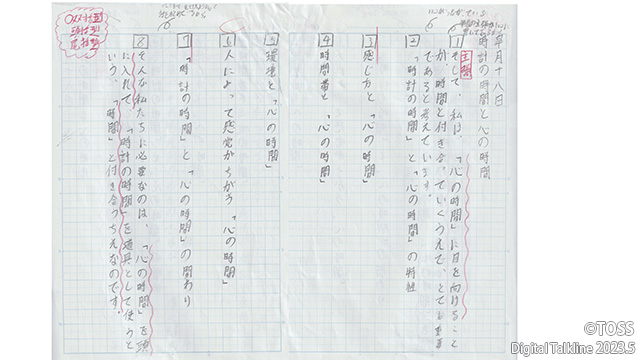 皐月十八日
時計の時間と心の時間
1 主張 そして、私は、「心の時間」に目を向けること
が、時間と付き合っていくうえで、とても重要
であると考えています。
2 「時計の時間」と「心の時間」の特性
3 感じ方と「心の時間」
4 時間帯と「心の時間」
5 環境と「心の時間」
6 人によって感覚がちがう「心の時間」
7 「時計の時間」と「心の時間」の関わり
8 そんな私たちに必要なのは、「心の時間」を頭
に入れて、「時計の時間」を道具として使うと
いう、「時間」と付き合うちえなのです。
©TOSS
Digital Talkline 2023.5